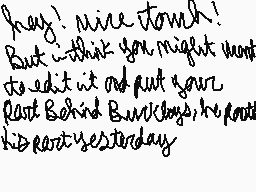 hey! nice touch!
But i think you might want
to edit it and put your
Part Behind Burkloys, he
his part yesterday